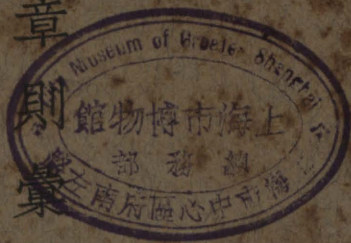 章則彙
Museum of Greater Shanghai
上海市博物館
務部
市中心區府南左